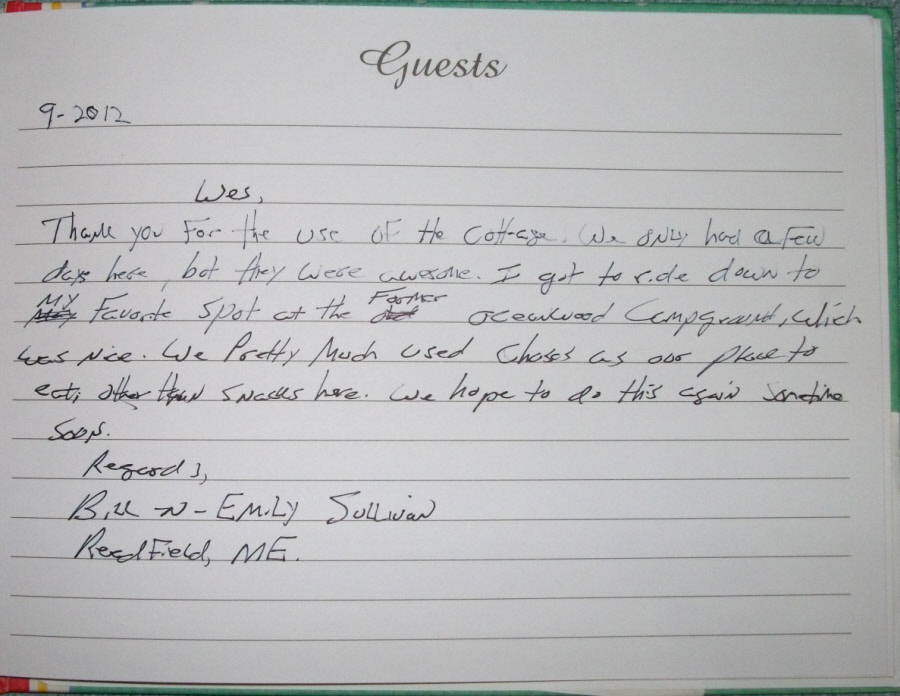 Guests
9-2012
Wes,
Thank you For the use OF the Cottage. We ONLY had a Few
days here, but they were awesome. I got to ride down to
MY Favorite Spot at the Former Oceanwood Campground, which
was Nice. We Pretty Much used Chases as our place to
eat, other than Snacks here. We hope to do this again Sometime
Soon.
Regards,
Bill -N- EMiLy SuLLivan
ReadField, ME.